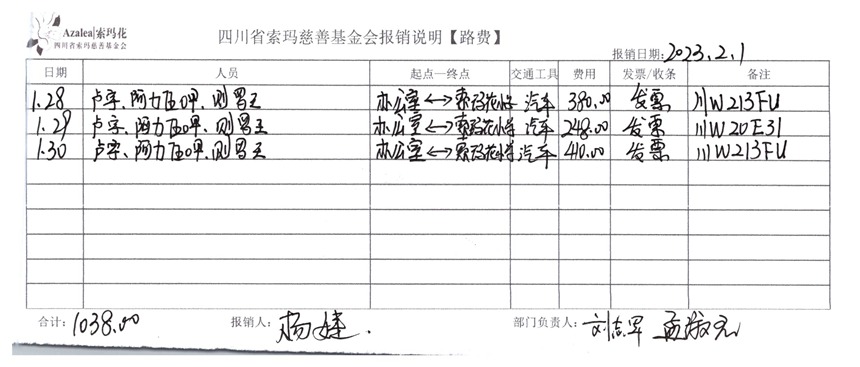 Azalea|索玛花
四川省索玛慈善基金会
四川省索玛慈善基金会报销说明【路费】
报销日期:2023.2.1
日期 人员 起点—终点 交通工具 费用 发票/收条 备注
1.28 卢宇、阿力 甲、则 王 办公室<->索玛花小学 汽车 380.00 发票 川W213FU
1.29 卢宇、阿力 甲、则 王 办公室<->索玛花小学 汽车 248.00 发票 川W20E31
1.30 卢宇、阿力 甲、则 王 办公室<->索玛花小学 汽车 410.00 发票 川W213FU
合计:1038.00 报销人:杨 部门负责人:刘志军 孟